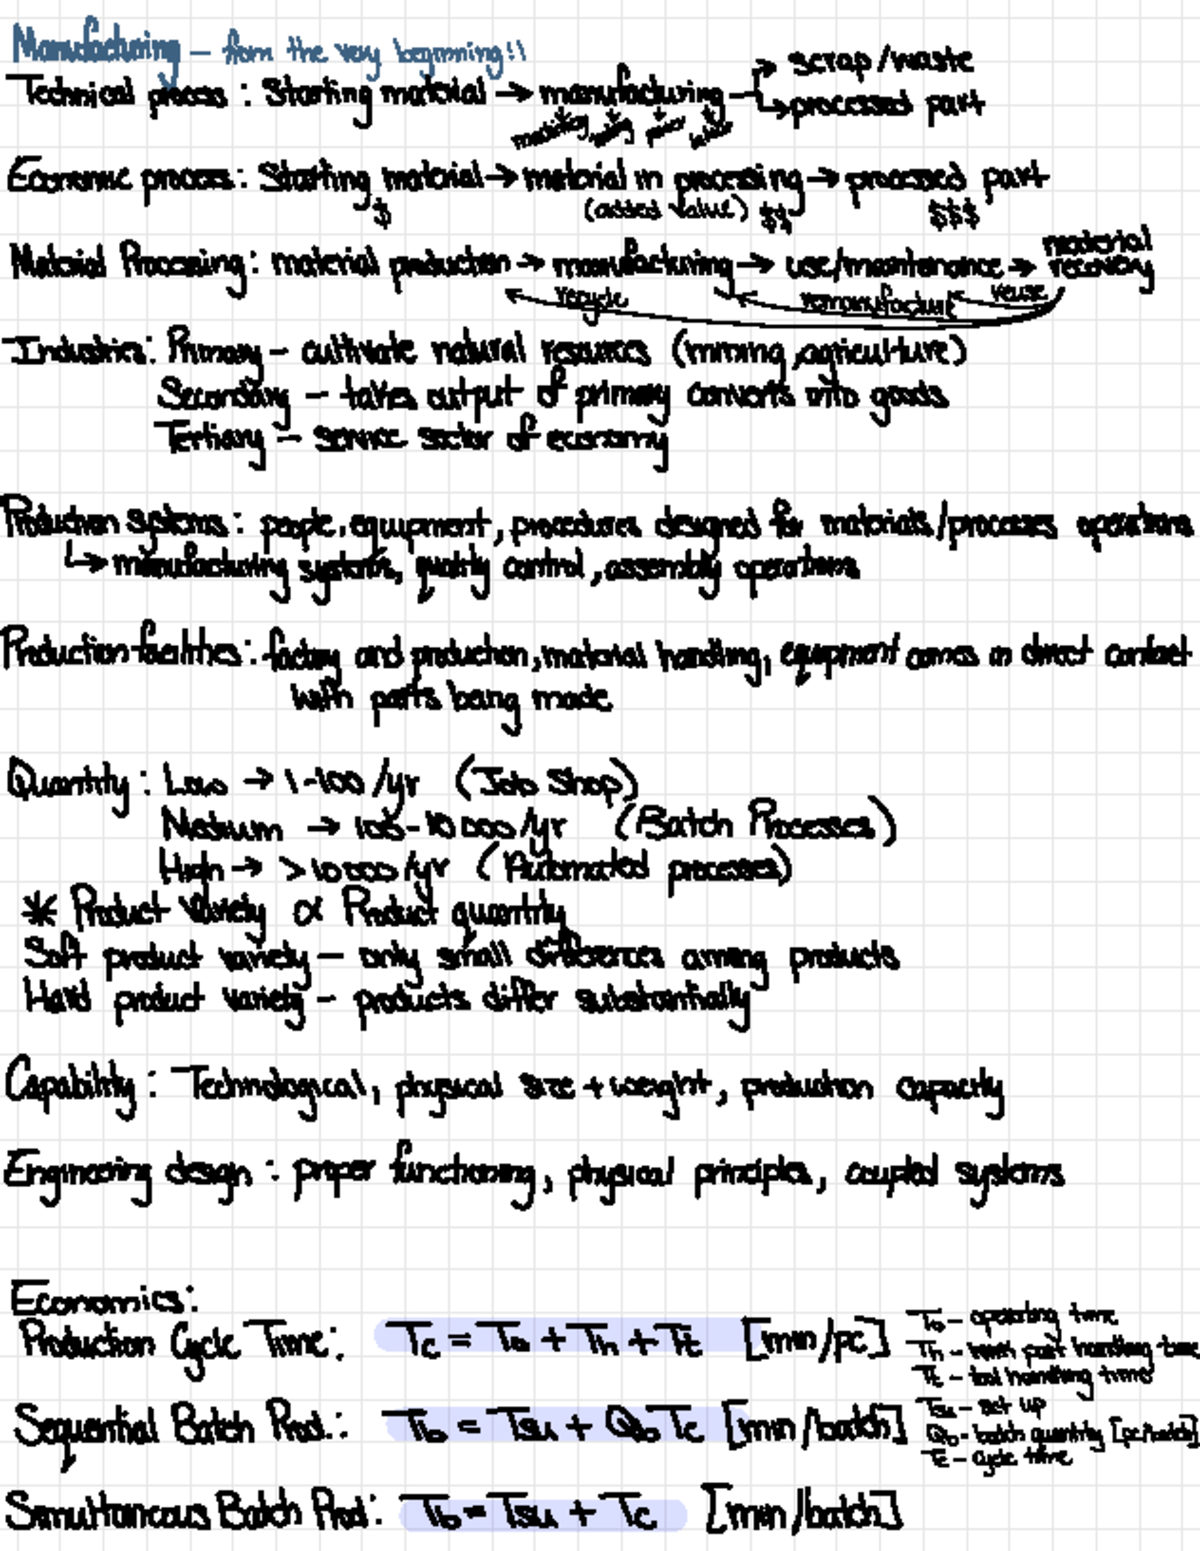 Manufacturing - from the very beginning!!
Technical process: Starting material → manufacturing → scrap/waste
→ processed part
machinery tooling power labor
Economic process: Starting material → material in processing → processed part
$ (added value) $$ $$$
Material Processing: material production → manufacturing → use/maintenance → material recovery
recycle remanufacture reuse
Industries: Primary - cultivate natural resources (mining, agriculture)
Secondary - takes output of primary converts into goods
Tertiary - service sector of economy
Production systems: people, equipment, procedures designed for materials/processes operations
↳ manufacturing systems, quality control, assembly operations
Production facilities: factory and production, material handling, equipment comes in direct contact
with parts being made
Quantity: Low → 1-100/yr (Job Shop)
Medium → 100-10000/yr (Batch Processes)
High → >10000/yr (Automated processes)
* Product Variety ∝ Product quantity
Soft product variety - only small differences among products
Hard product variety - products differ substantially
Capability: Technological, physical size + weight, production capacity
Engineering design: proper functioning, physical principles, coupled systems
Economics:
Production Cycle Time: Tc = To + Th + Tt [min/pc]
To - operating time
Th - part handling time
Tt - tool handling time
Sequential Batch Prod.: Tb = Tsu + QbTc [min/batch]
Tsu - set up
Qb - batch quantity [pc/batch]
Tc - cycle time
Simultaneous Batch Prod: Tb = Tsu + Tc [min/batch]